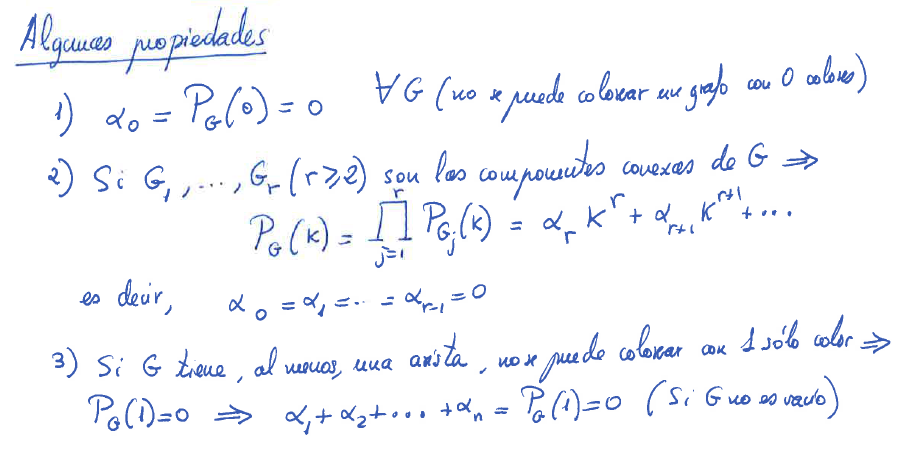 Algunas propiedades
1) α₀ = P_G(0) = 0 ∀G (no se puede colorear un grafo con 0 colores)
2) Si G₁, ..., G_r (r ⩾ 2) son las componentes conexas de G ⇒
P_G(k) = ∏_{j=1}^{r} P_{G_j}(k) = α_r k^r + α_{r+1} k^{r+1} + ...
es decir, α₀ = α₁ = ... = α_{r-1} = 0
3) Si G tiene, al menos, una arista, no se puede colorear con 1 sólo color ⇒
P_G(1) = 0 ⇒ α₁ + α₂ + ... + α_n = P_G(1) = 0 (Si G no es vacío)